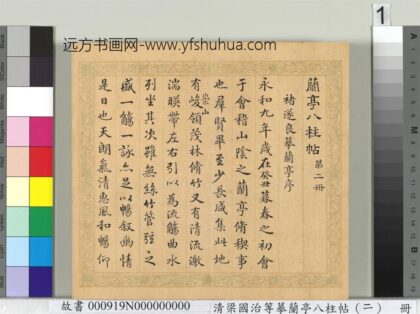 远方书画网-www.yfshuhua.com
1
蘭亭八柱帖 第二冊
褚遂良摹蘭亭序
永和九年歲在癸丑暮春之初會
于會稽山陰之蘭亭脩稧事
也羣賢畢至少長咸集此地
有崇山峻領茂林脩竹又有清流激
湍暎帶左右引以為流觴曲水
列坐其次雖無絲竹管弦之
盛一觴一詠亦足以暢叙幽情
是日也天朗氣清惠風和暢仰
故書 000919N000000000
清梁國治等摹蘭亭八柱帖(二) 冊